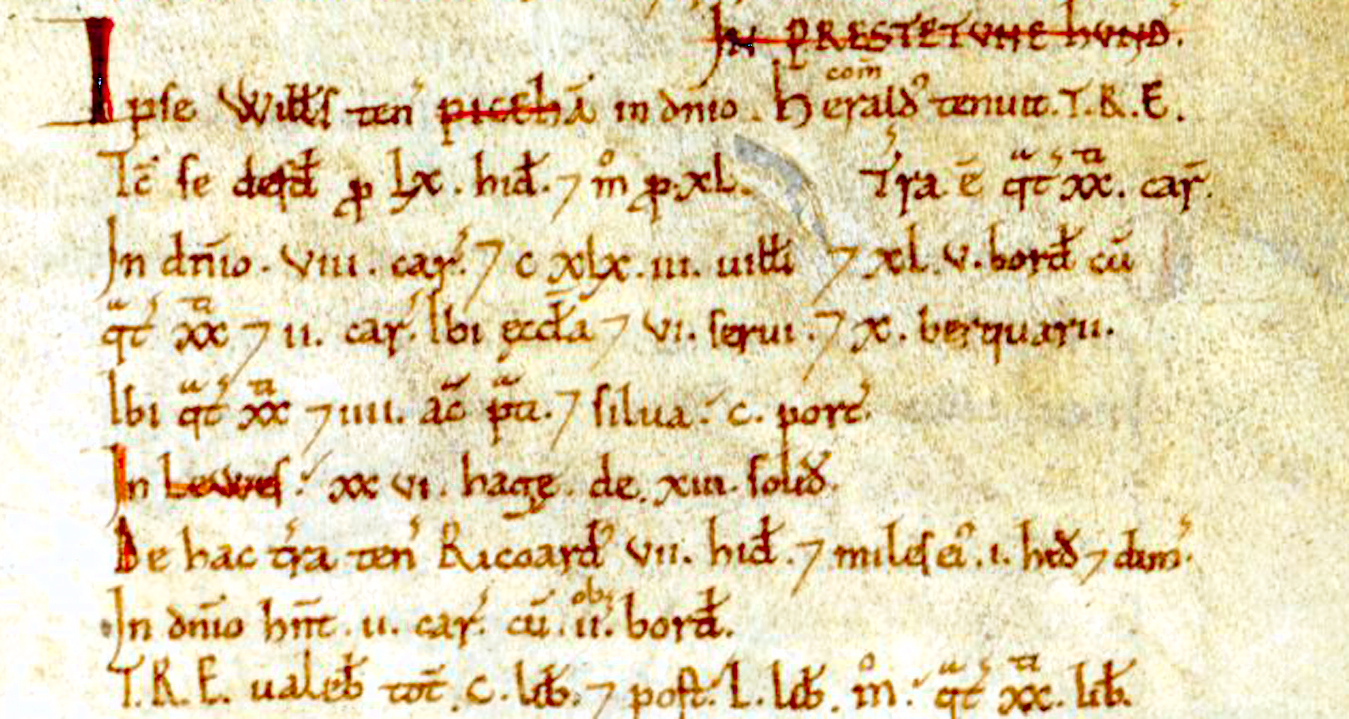 IN PRESTETUNE HUND'.
Ipse Willꝉs ten' PICEHĀ in dn̄io. Herald' com̄ tenuit. T.R.E.
Tc̄ se defd̄ ꝓ lx. hid̄. ⁊ m̊ ꝓ xl. T'ra ē qͣt' xx͞ti. car'.
In dn̄io. viii. car'. ⁊ c xlx. iii. uill̄i ⁊ xl. v. bord̄ cū
qͣt' xx͞ti ⁊ ii. car'. Ibi æccl̄a ⁊ vi. serui. ⁊ x. berquarii.
Ibi qͣt' xx͞ti ⁊ iiii. ac̄ p̄ti. ⁊ silua: c. porc'.
In Lewes: xx vi. hagę. de. xiii. solid'.
De hac t'ra ten' Ricoard' vii. hid̄. ⁊ miles ei'. i. hid' ⁊ dim'.
In dn̄io hn̄t. ii. car'. cū. ii. obꝫ bord̄.
T.R.E. ualeb̄ tot̄. c. lib̄. ⁊ post: L. lib̄. m̊: qͣt' xx͞ti. lib̄.